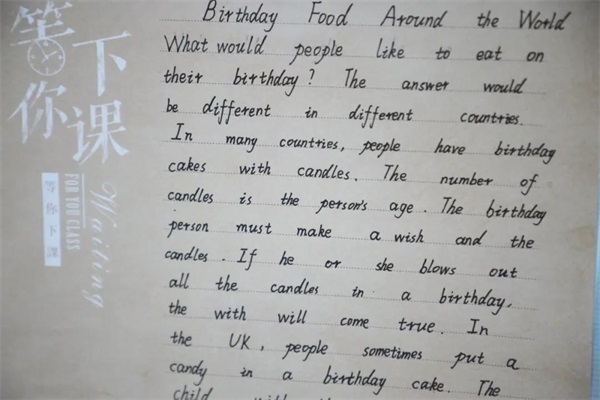 等你下课
Waiting
FOR YOU CLASS
等你下課
Birthday Food Around the World
What would people like to eat on
their birthday? The answer would
be different in different countries.
In many countries, people have birthday
cakes with candles. The number of
candles is the person's age. The birthday
person must make a wish and the
candles. If he or she blows out
all the candles in a birthday,
the with will come true. In
the UK, people sometimes put a
candy in a birthday cake. The
child with the